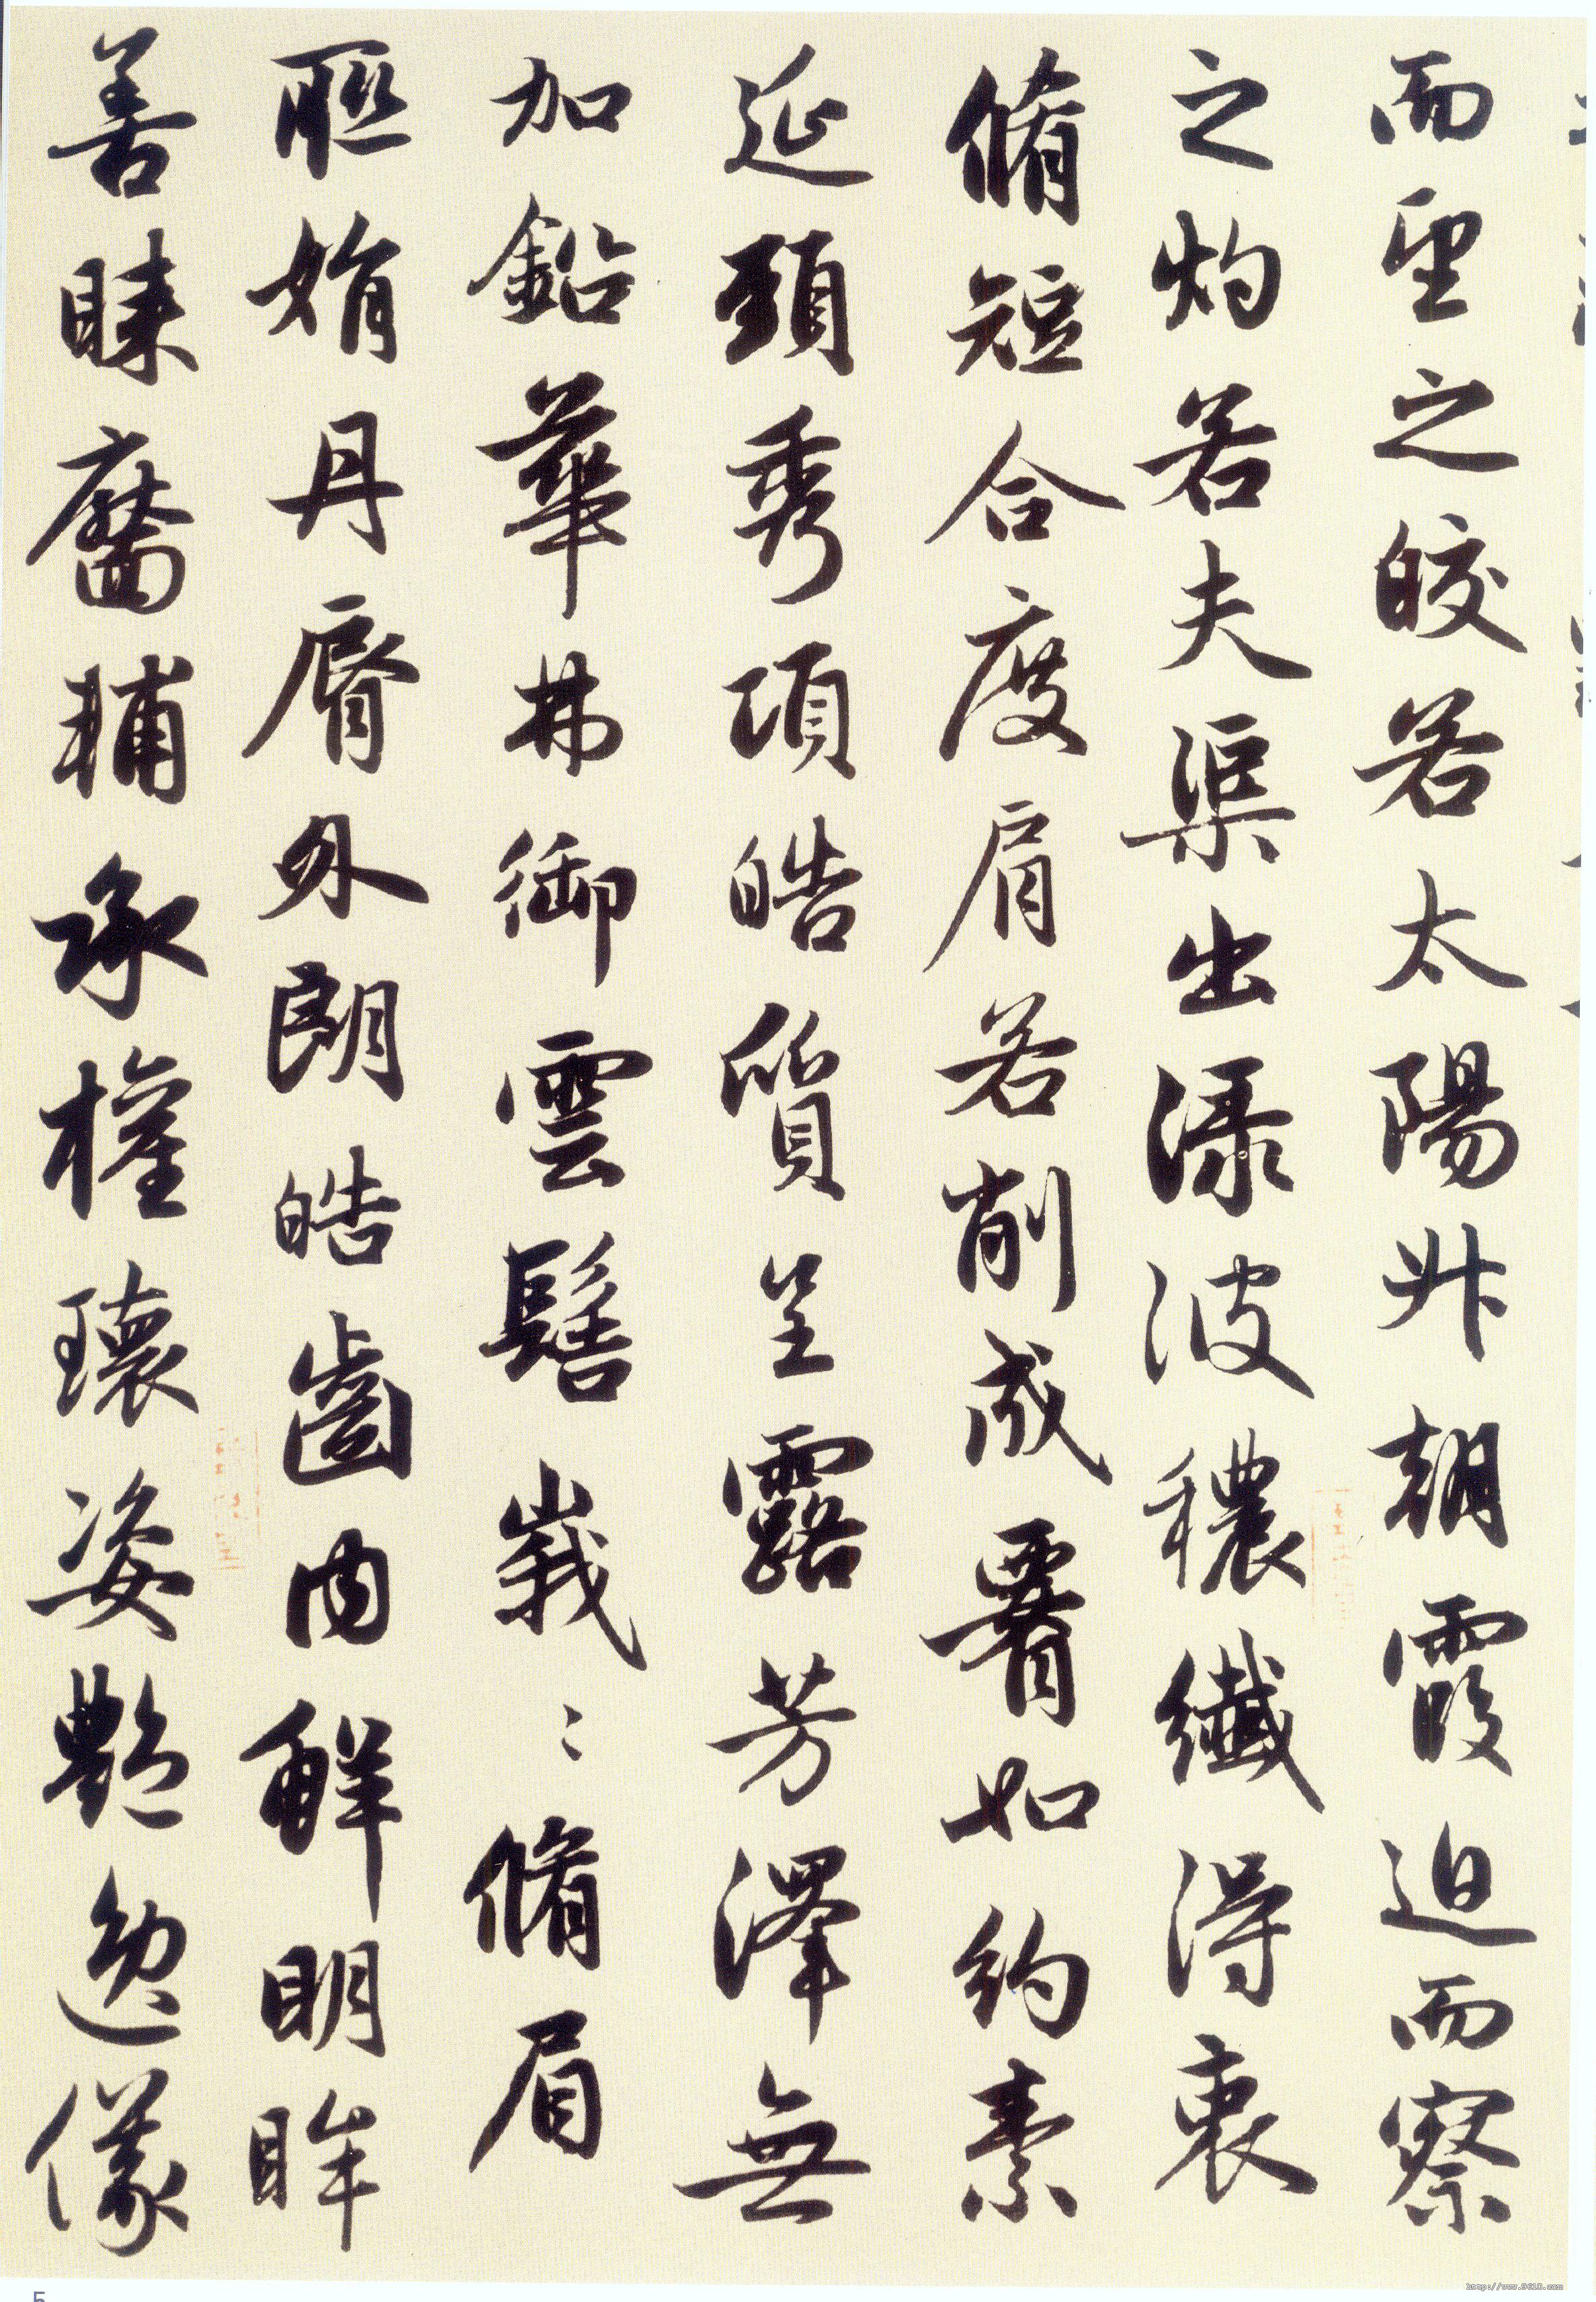 而望之皎若太陽升朝霞迫而察
之灼若夫渠出淥波穠纖得衷
脩短合度肩若削成署如約素
延頸秀項皓質呈露芳澤無
加鉛華弗御雲髻峩〻脩眉
聮娟丹脣外朗皓齒内鮮明眸
善睞靨輔承權瓌姿艷逸儀
5